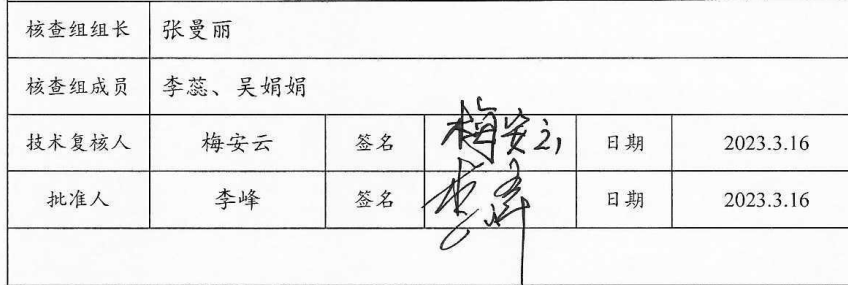 核查组组长 张曼丽
核查组成员 李蕊、吴娟娟
技术复核人 梅安云 签名 梅安云 日期 2023.3.16
批准人 李峰 签名 李峰 日期 2023.3.16